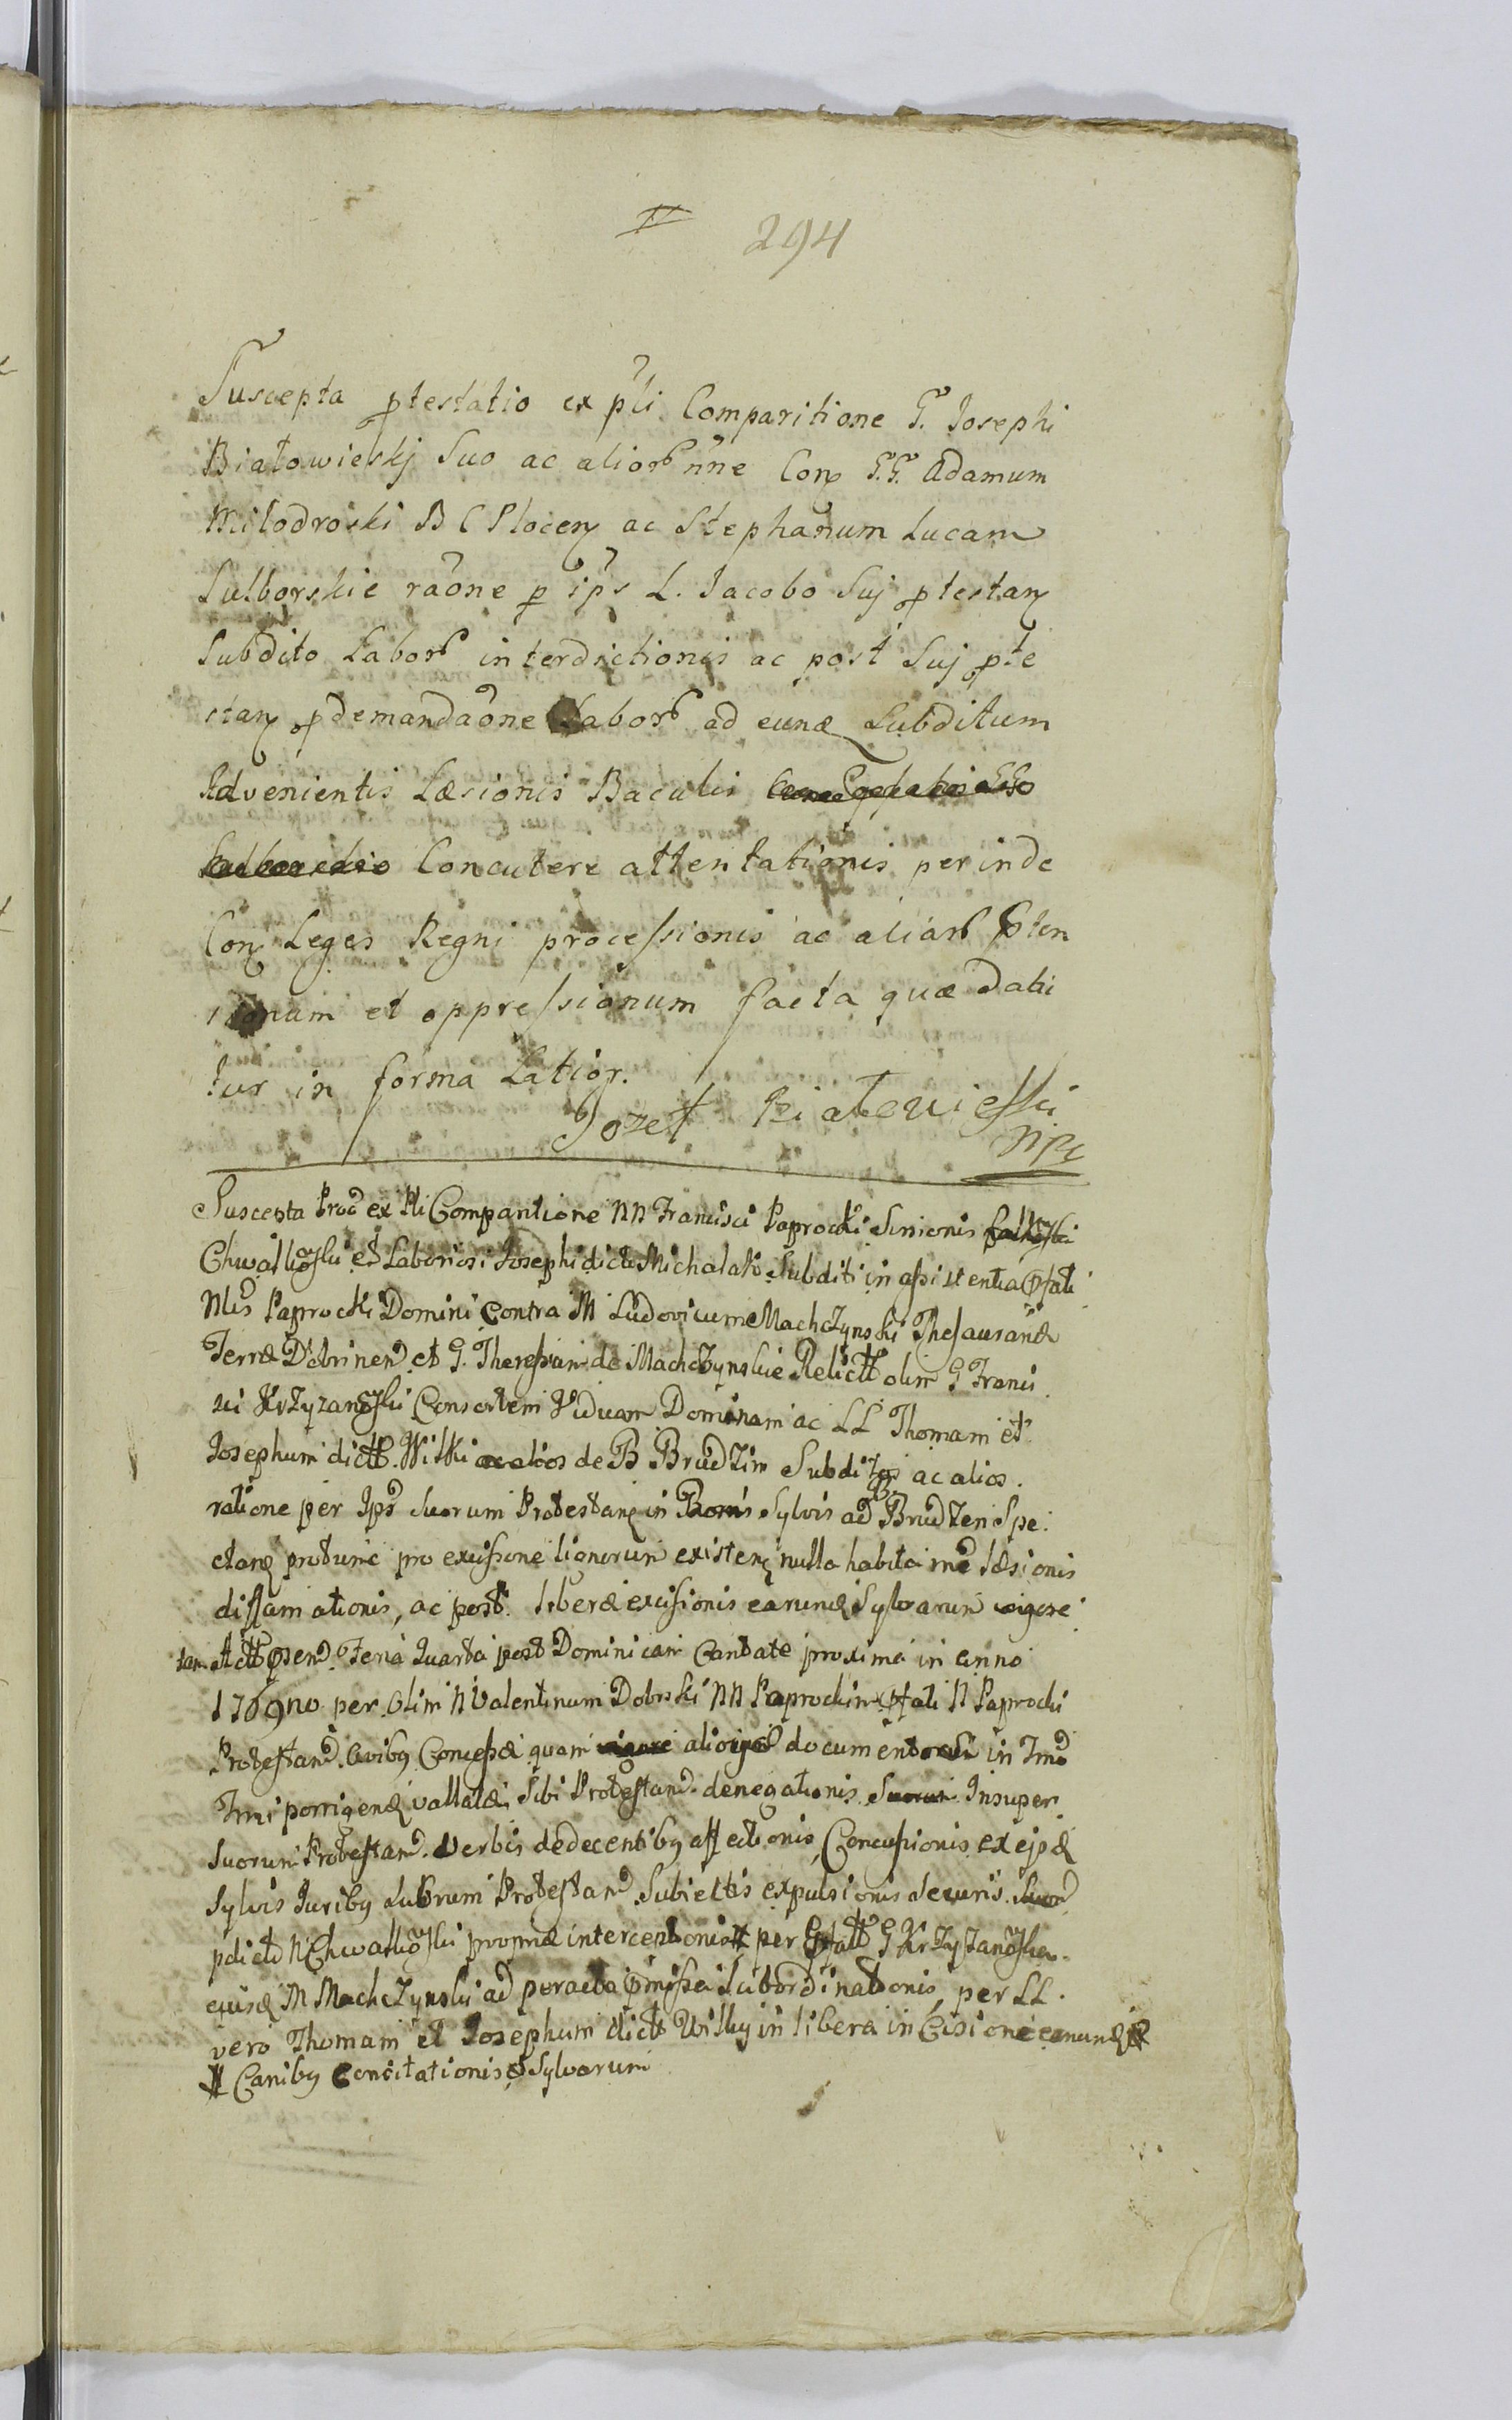 294
Suscepta ptestatio ex pti Comparitione G. Josephi
Białowieskj Suo ac alior nne Con GG. Adamum
Miłodroski B C Plocen ac Stephanum Lucam
Sulborskie raõne p ips L. Jacobo Suj ptestan
Subdito Labor interdictionis ac post Suj pte
stan pdemandaõne Labor ad eunđ Subditum
Advenientis Læsionis Baculis
Concutere attentationis perinde
Con Leges Regni processionis ac aliar
et oppressionum facta quæ dabi
tur in forma Latior.
Jozef Białowieski
mp
Suscepta Prot ex Pti Comparitione NN Francisci Paprocki Senionis
Chwalkoski et Laboriosi Josephi dict Michalak Subditi in assistentia pfati
Nlis Paprocki Domini Contra M Ludovicum Machczynski Thesaurariđ
Terræ Dobrinen et G. Theressam de Machczynskie Relict olim G Franci
sci Krzyzanoski Consortem Viduam Dominam ac LL Thomam et
Josephum dict. Wilki de B Brudzin Subditos ac alios.
ratione per Ips Suorum Protestan in Sylvis ad Brudzen Spe
ctan protunc pro excissione lignorum existen nulla habita læsionis
diffamationis, ac post. liberæ excisionis earunđ Sylvarum vigore
tam Act psen Feria Quarta post Dominicam Cantate proxima in anno
1769no per Olim N Valentinum Dobrski NN Paprockim pfati N Paprocki
Protestan. Avibg Concessæ quam documentor in
porrigenđ vallatæ Sibi Protestan. denegationis Insuper
Suorum Protestan. Verbis dedecentibg affectionis Concussionis ex ejsđ
Sylvis Juribg Protestan Subiectis expulsionis Securis
pdict N Chwalkoski propriæ interceptionis # per pfatt G Krzyzanoska
ejusđ M Machczynski ad peracta pmissa Subordinationis, per LL.
vero Thomam et Josephum dict Wilky in libera incisione earunđ
# Canibg Concitationis Sylvarum